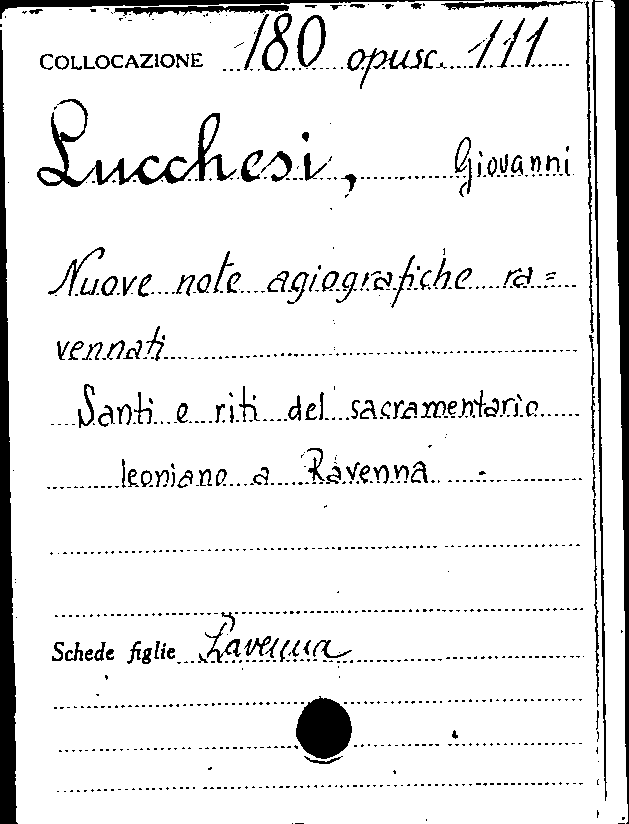 COLLOCAZIONE 180 opusc. 111
Lucchesi, Giovanni
Nuove note agiografiche ra=
vennati
Santi e riti del sacramentario
leoniano a Ravenna.
Schede figlie Ravenna